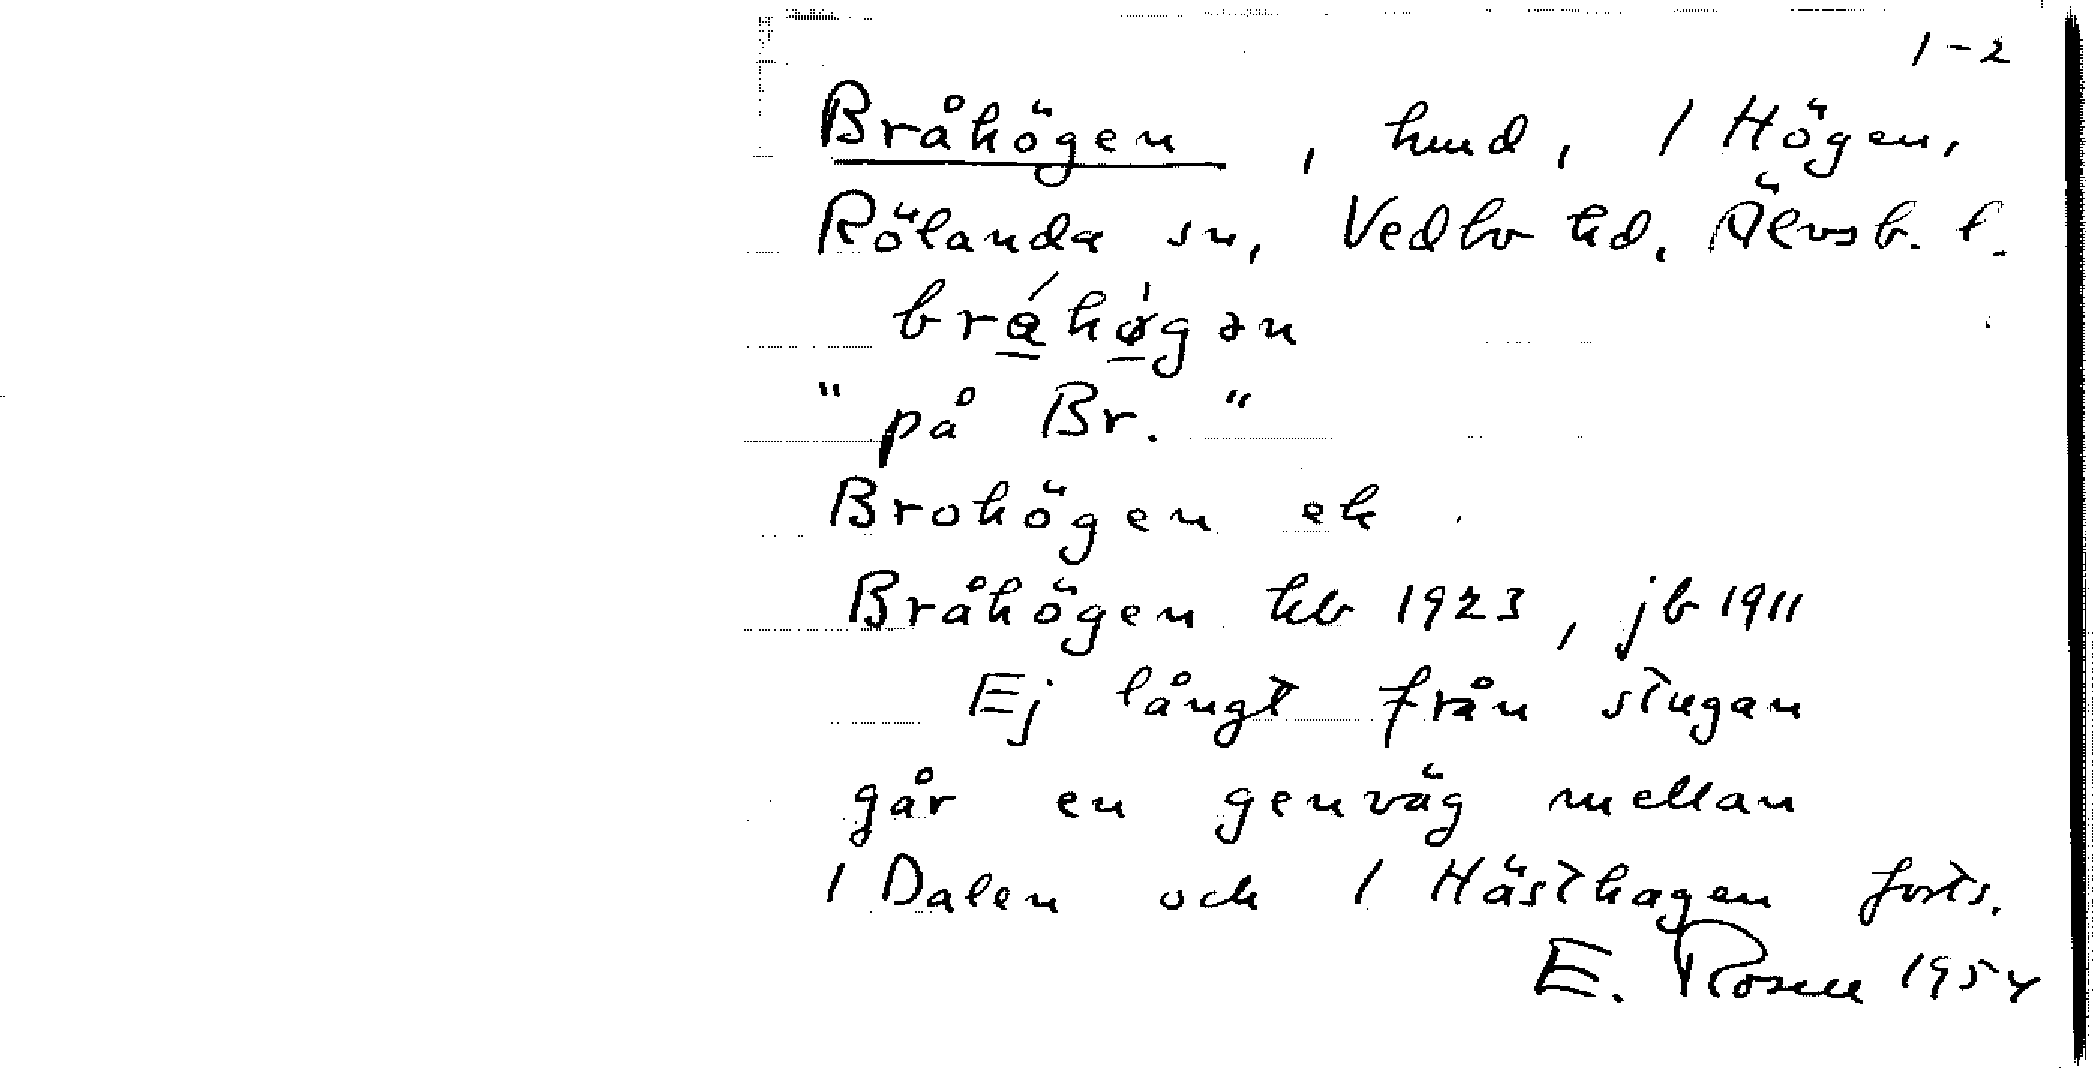 1-2
Bråhögen, hmd, 1 Högen,
Rölanda sn, Vedbo hd. Älvsb. l.
bråhø̀gən
" på Br. "
Brohögen ek
Bråhögen hb 1923, jb 1911
Ej långt från stugan
går en genväg mellan
1 Dalen och 1 Hästhagen forts.
E. Rosell 1954